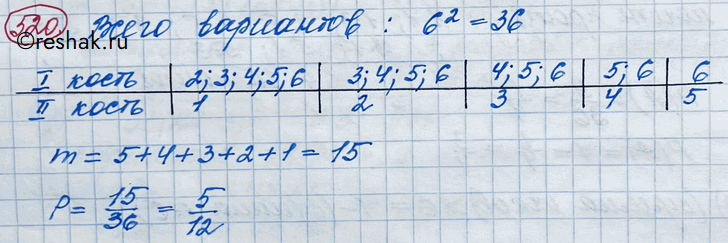 520 Всего вариантов : 6² = 36
©reshak.ru
I кость | 2; 3; 4; 5; 6 | 3; 4; 5; 6 | 4; 5; 6 | 5; 6 | 6
II кость | 1 | 2 | 3 | 4 | 5
m = 5+4+3+2+1 = 15
P = 15/36 = 5/12